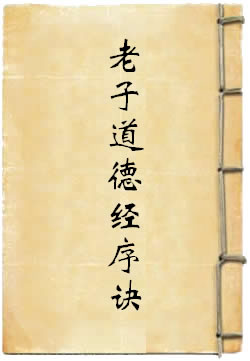 老子道德经序诀